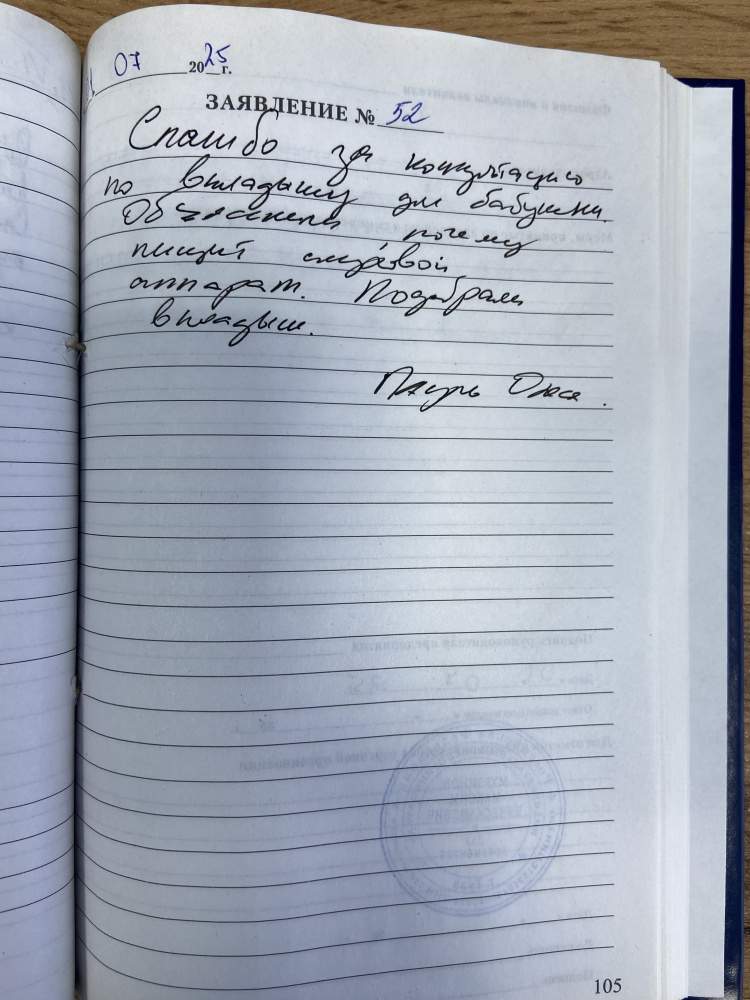 07 2025 г.
ЗАЯВЛЕНИЕ № 52
Спасибо за консультацию
по вкладышу для бабушки.
Объяснили, почему
пищит слуховой
аппарат. Подобрали
вкладыш.
105